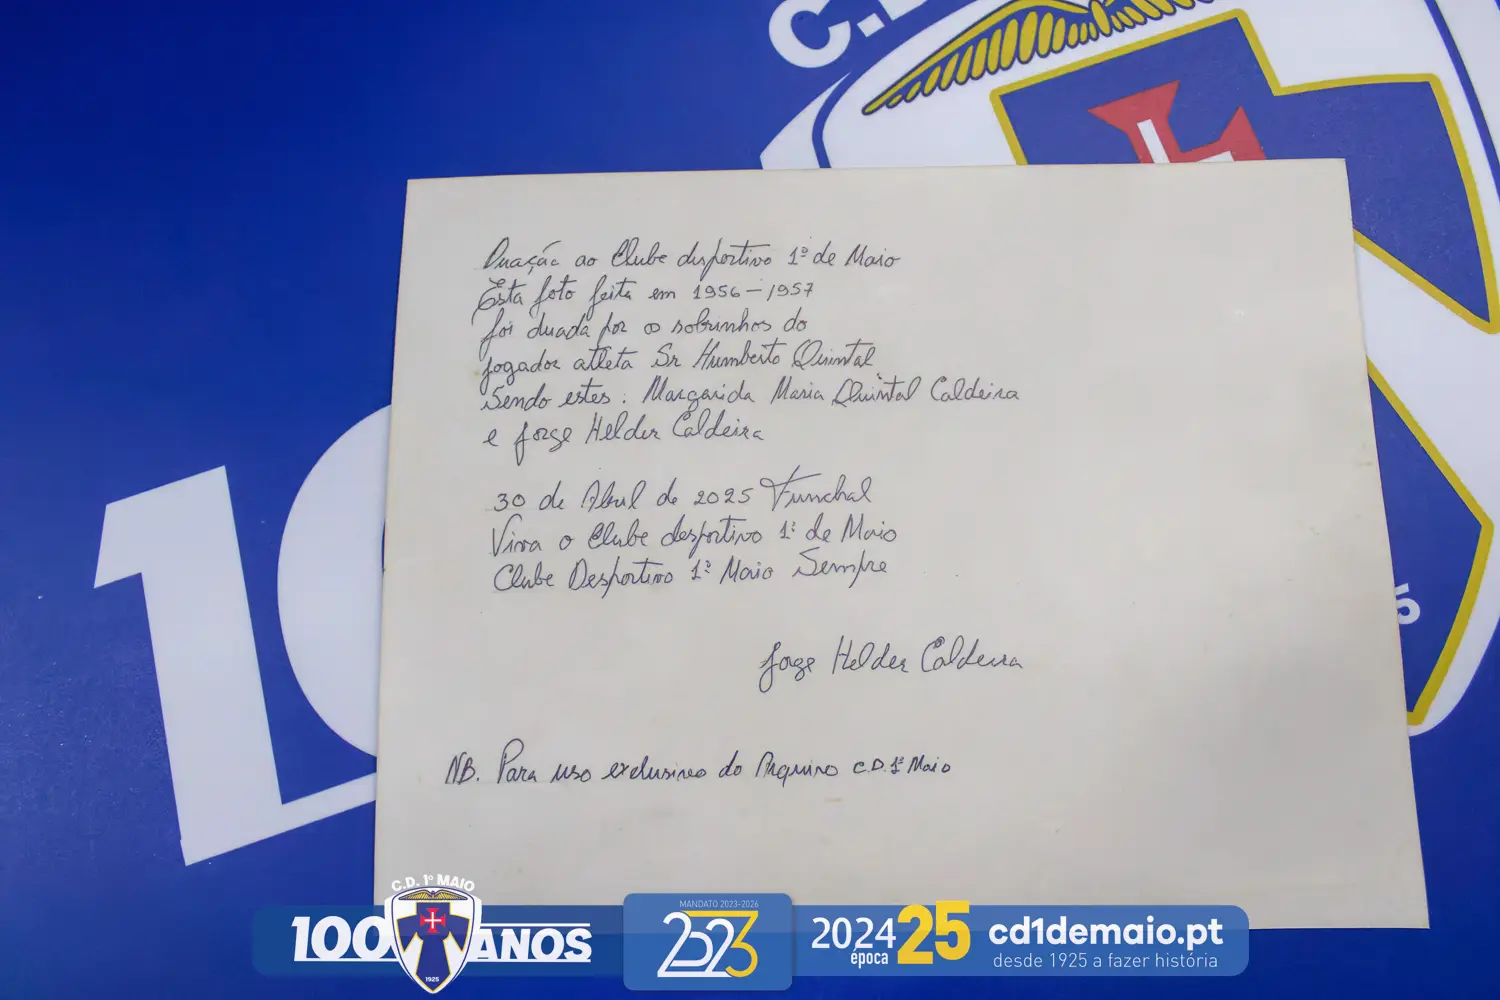 C.D
Duação ao Clube desportivo 1º de Maio
Esta foto feita em 1956-1957
foi duada por os sobrinhos do
jogador atleta Sr Humberto Quintal
Sendo estes: Margarida Maria Quintal Caldeira
e Jorge Helder Caldeira
30 de Abril de 2025 Funchal
Viva o Clube desportivo 1º de Maio
Clube Desportivo 1º Maio Sempre
Jorge Helder Caldeira
NB. Para uso exclusivo do Arquivo C.D. 1º Maio
10
5
C.D. 1º MAIO
100 ANOS
1925
MANDATO 2023-2026
2023
2024 25
época
cd1demaio.pt
desde 1925 a fazer história